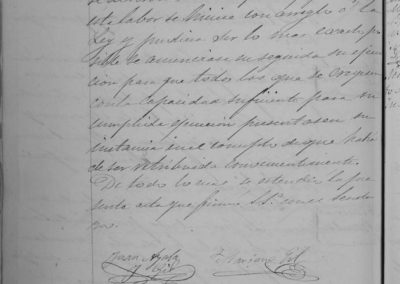 esta labor de Música con arreglo á la
Ley y pudiera ser lo mas exacto po
sible se anunciase en seguida su ejecu
cion para que todos los que se creyesen
con la capacidad suficiente para su
cumplida ejecucion presentasen su
instancia en el concepto de que habia
de ser retribuido convenientemente.
De todo lo cual se estendió la pre
sente acta que firma S.S. como Secreta
rio.
Juan Ayala
y Gil
Mariano Gil